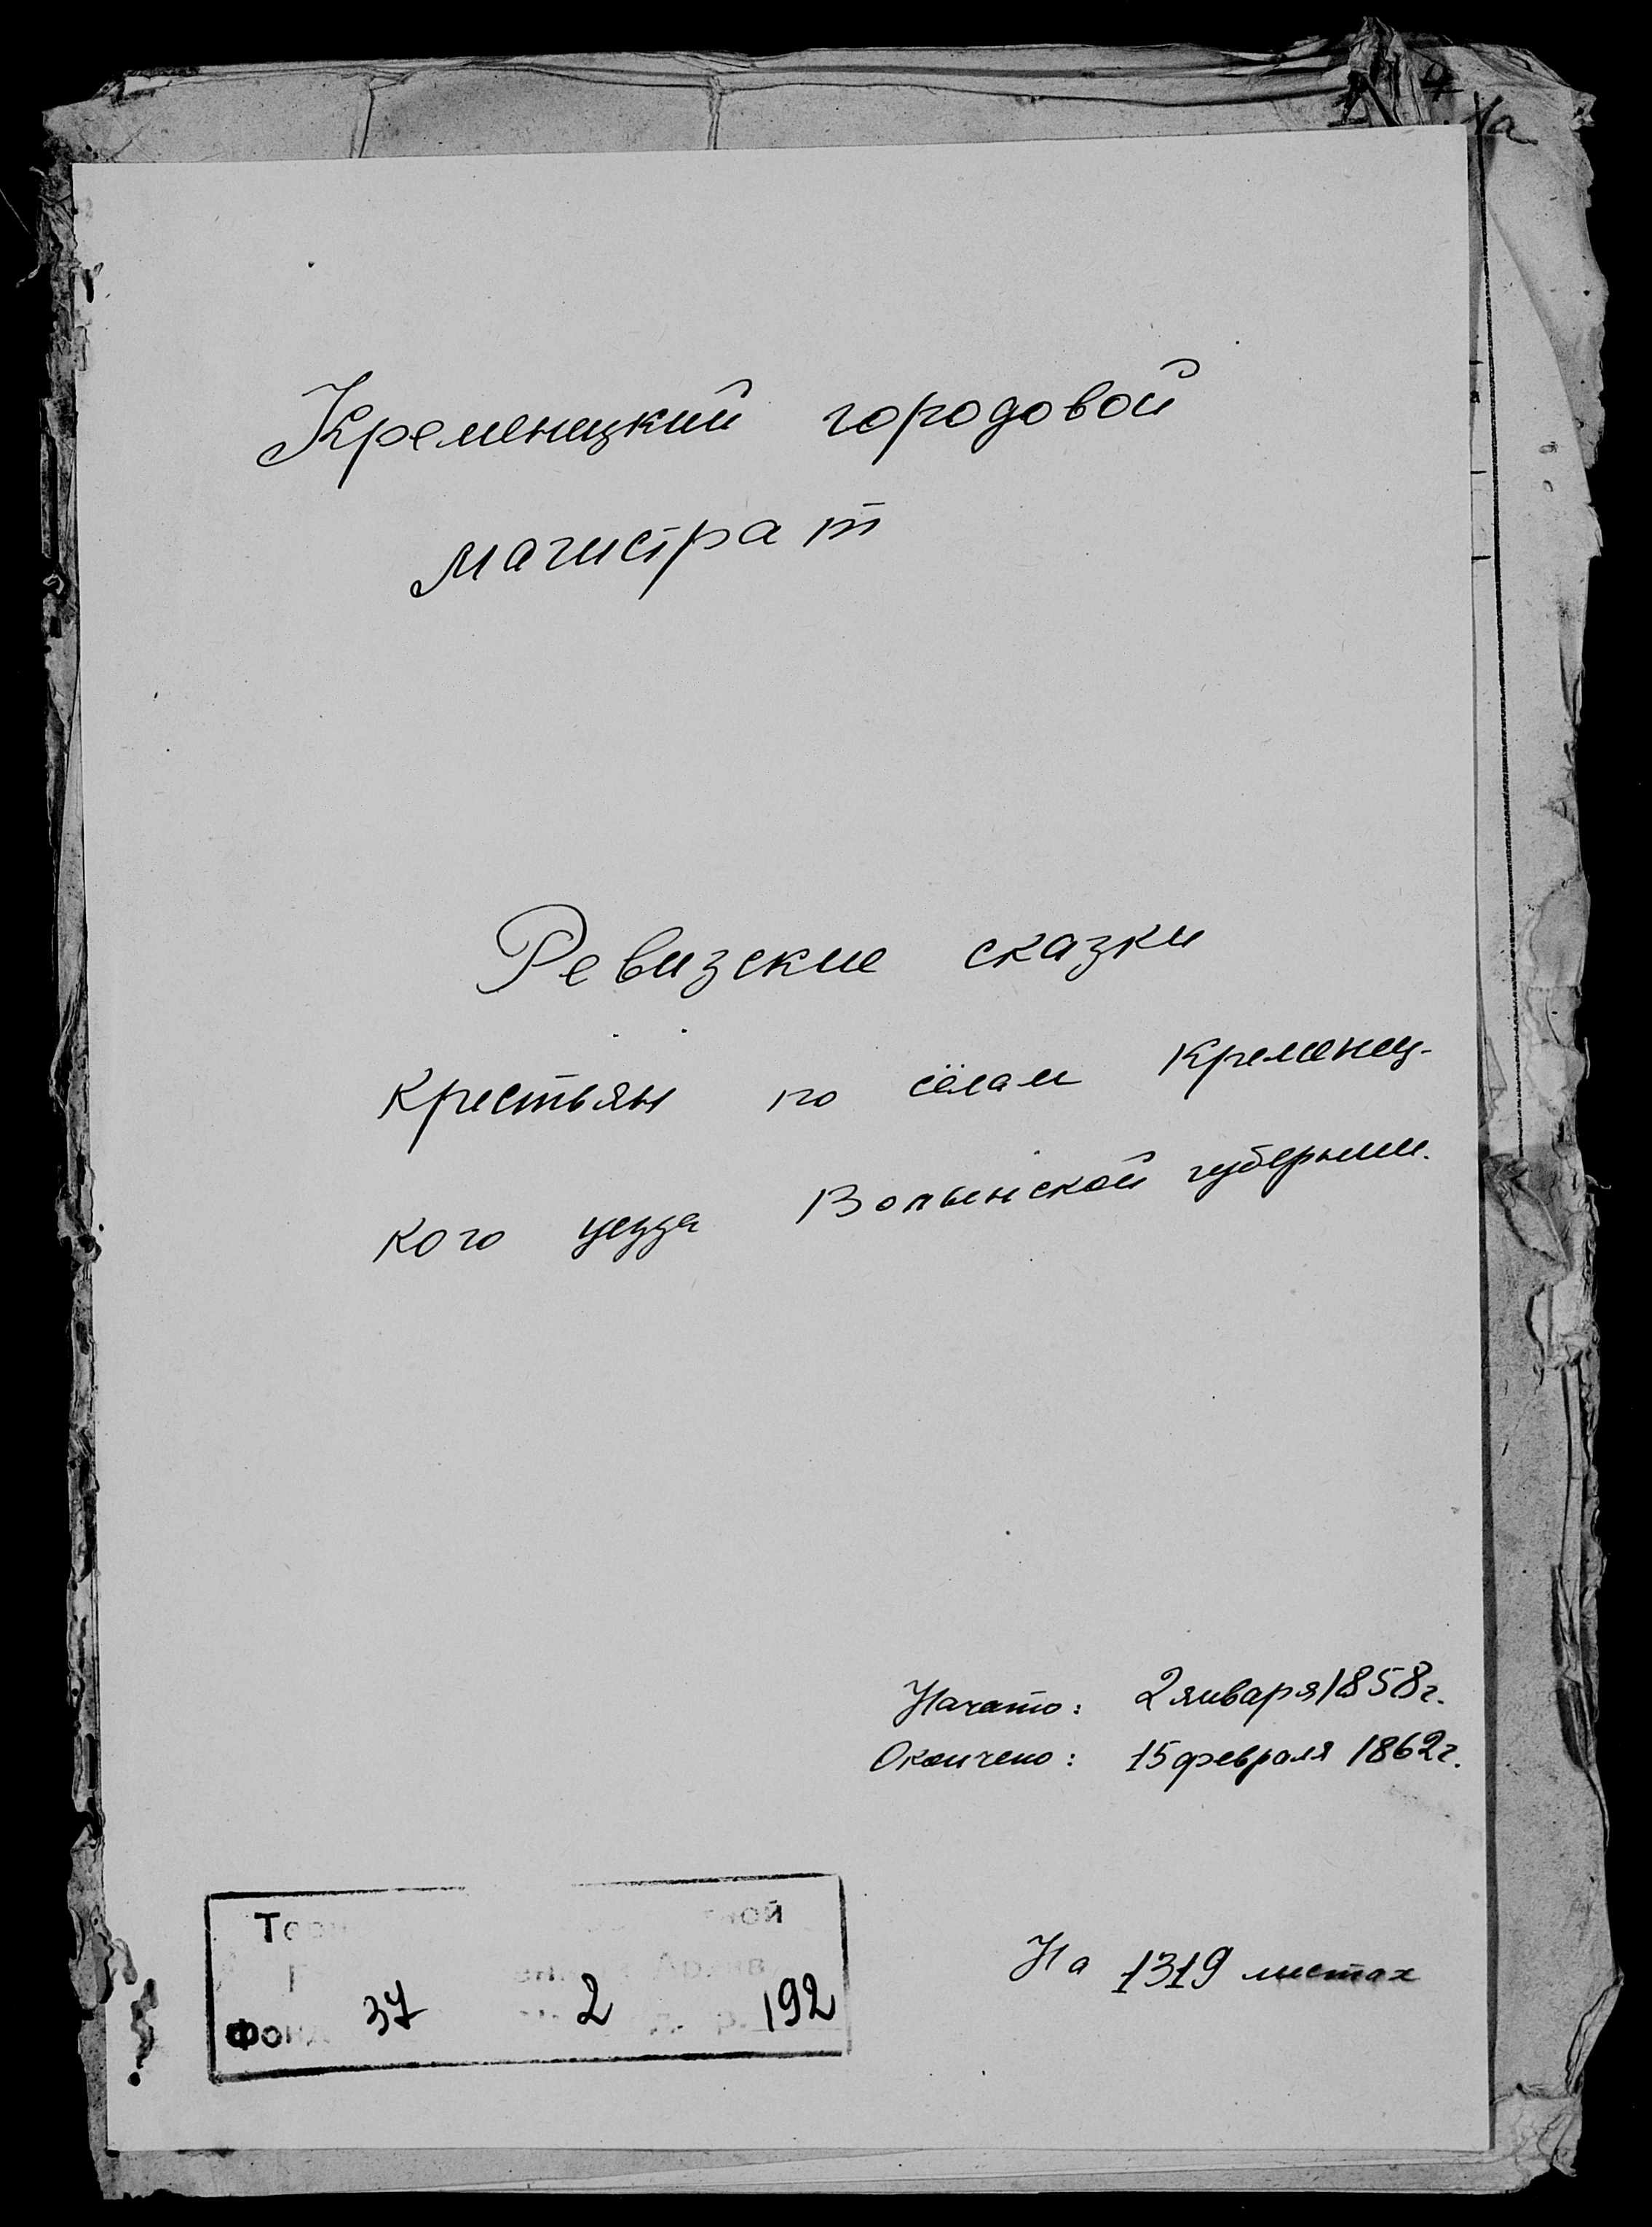 Кременецкий городовой
магистрат
Ревизские сказки
крестьян по сёлам Кременец-
кого уезда Волынской губернии.
Начато: 2 января 1858 г.
Окончено: 15 февраля 1862 г.
На 1319 листах
37 2 192